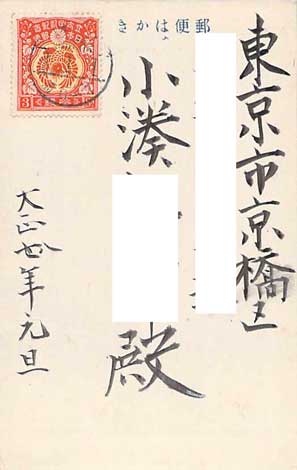 郵便はかき
東京市京橋区
小湊
殿
大正
年元旦
3